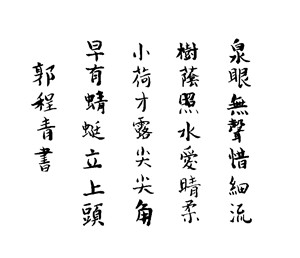 泉眼無聲惜細流
樹蔭照水愛晴柔
小荷才露尖尖角
早有蜻蜓立上頭
郭程青書